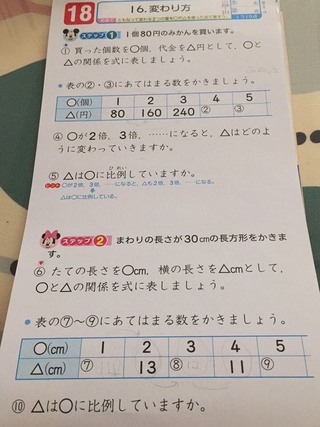 18
16.変わり方
ステップ1 1個80円のみかんを買います。
① 買った個数を○個，代金を△円として，○と
△の関係を式に表しましょう。
• 表の②・③にあてはまる数をかきましょう。
○(個) 1 2 3 4 5
△(円) 80 160 240 ② ③
④ ○が2倍，3倍，……になると，△はどのよ
うに変わっていきますか。
⑤ △は○に比例していますか。
ひれい
○が2倍，3倍，……になると，△も2倍，3倍，……になる。
△は○に比例している。
ステップ2 まわりの長さが30cmの長方形をかきま
す。
⑥ たての長さを○cm，横の長さを△cmとして，
○と△の関係を式に表しましょう。
• 表の⑦〜⑨にあてはまる数をかきましょう。
○(cm) 1 2 3 4 5
△(cm) ⑦ 13 ⑧ 11 ⑨
⑩ △は○に比例していますか。